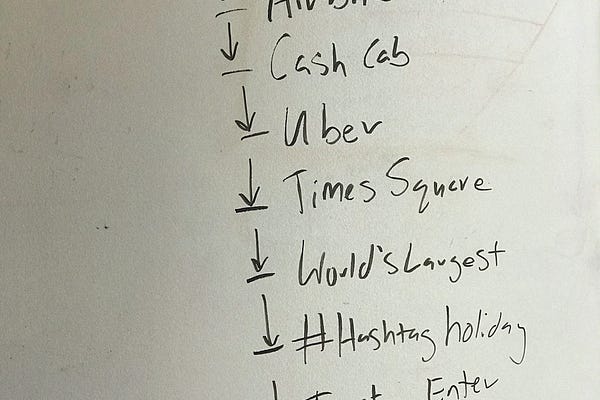 Cash Cab
Uber
Times Square
World's Largest
#Hashtag holiday
Enter